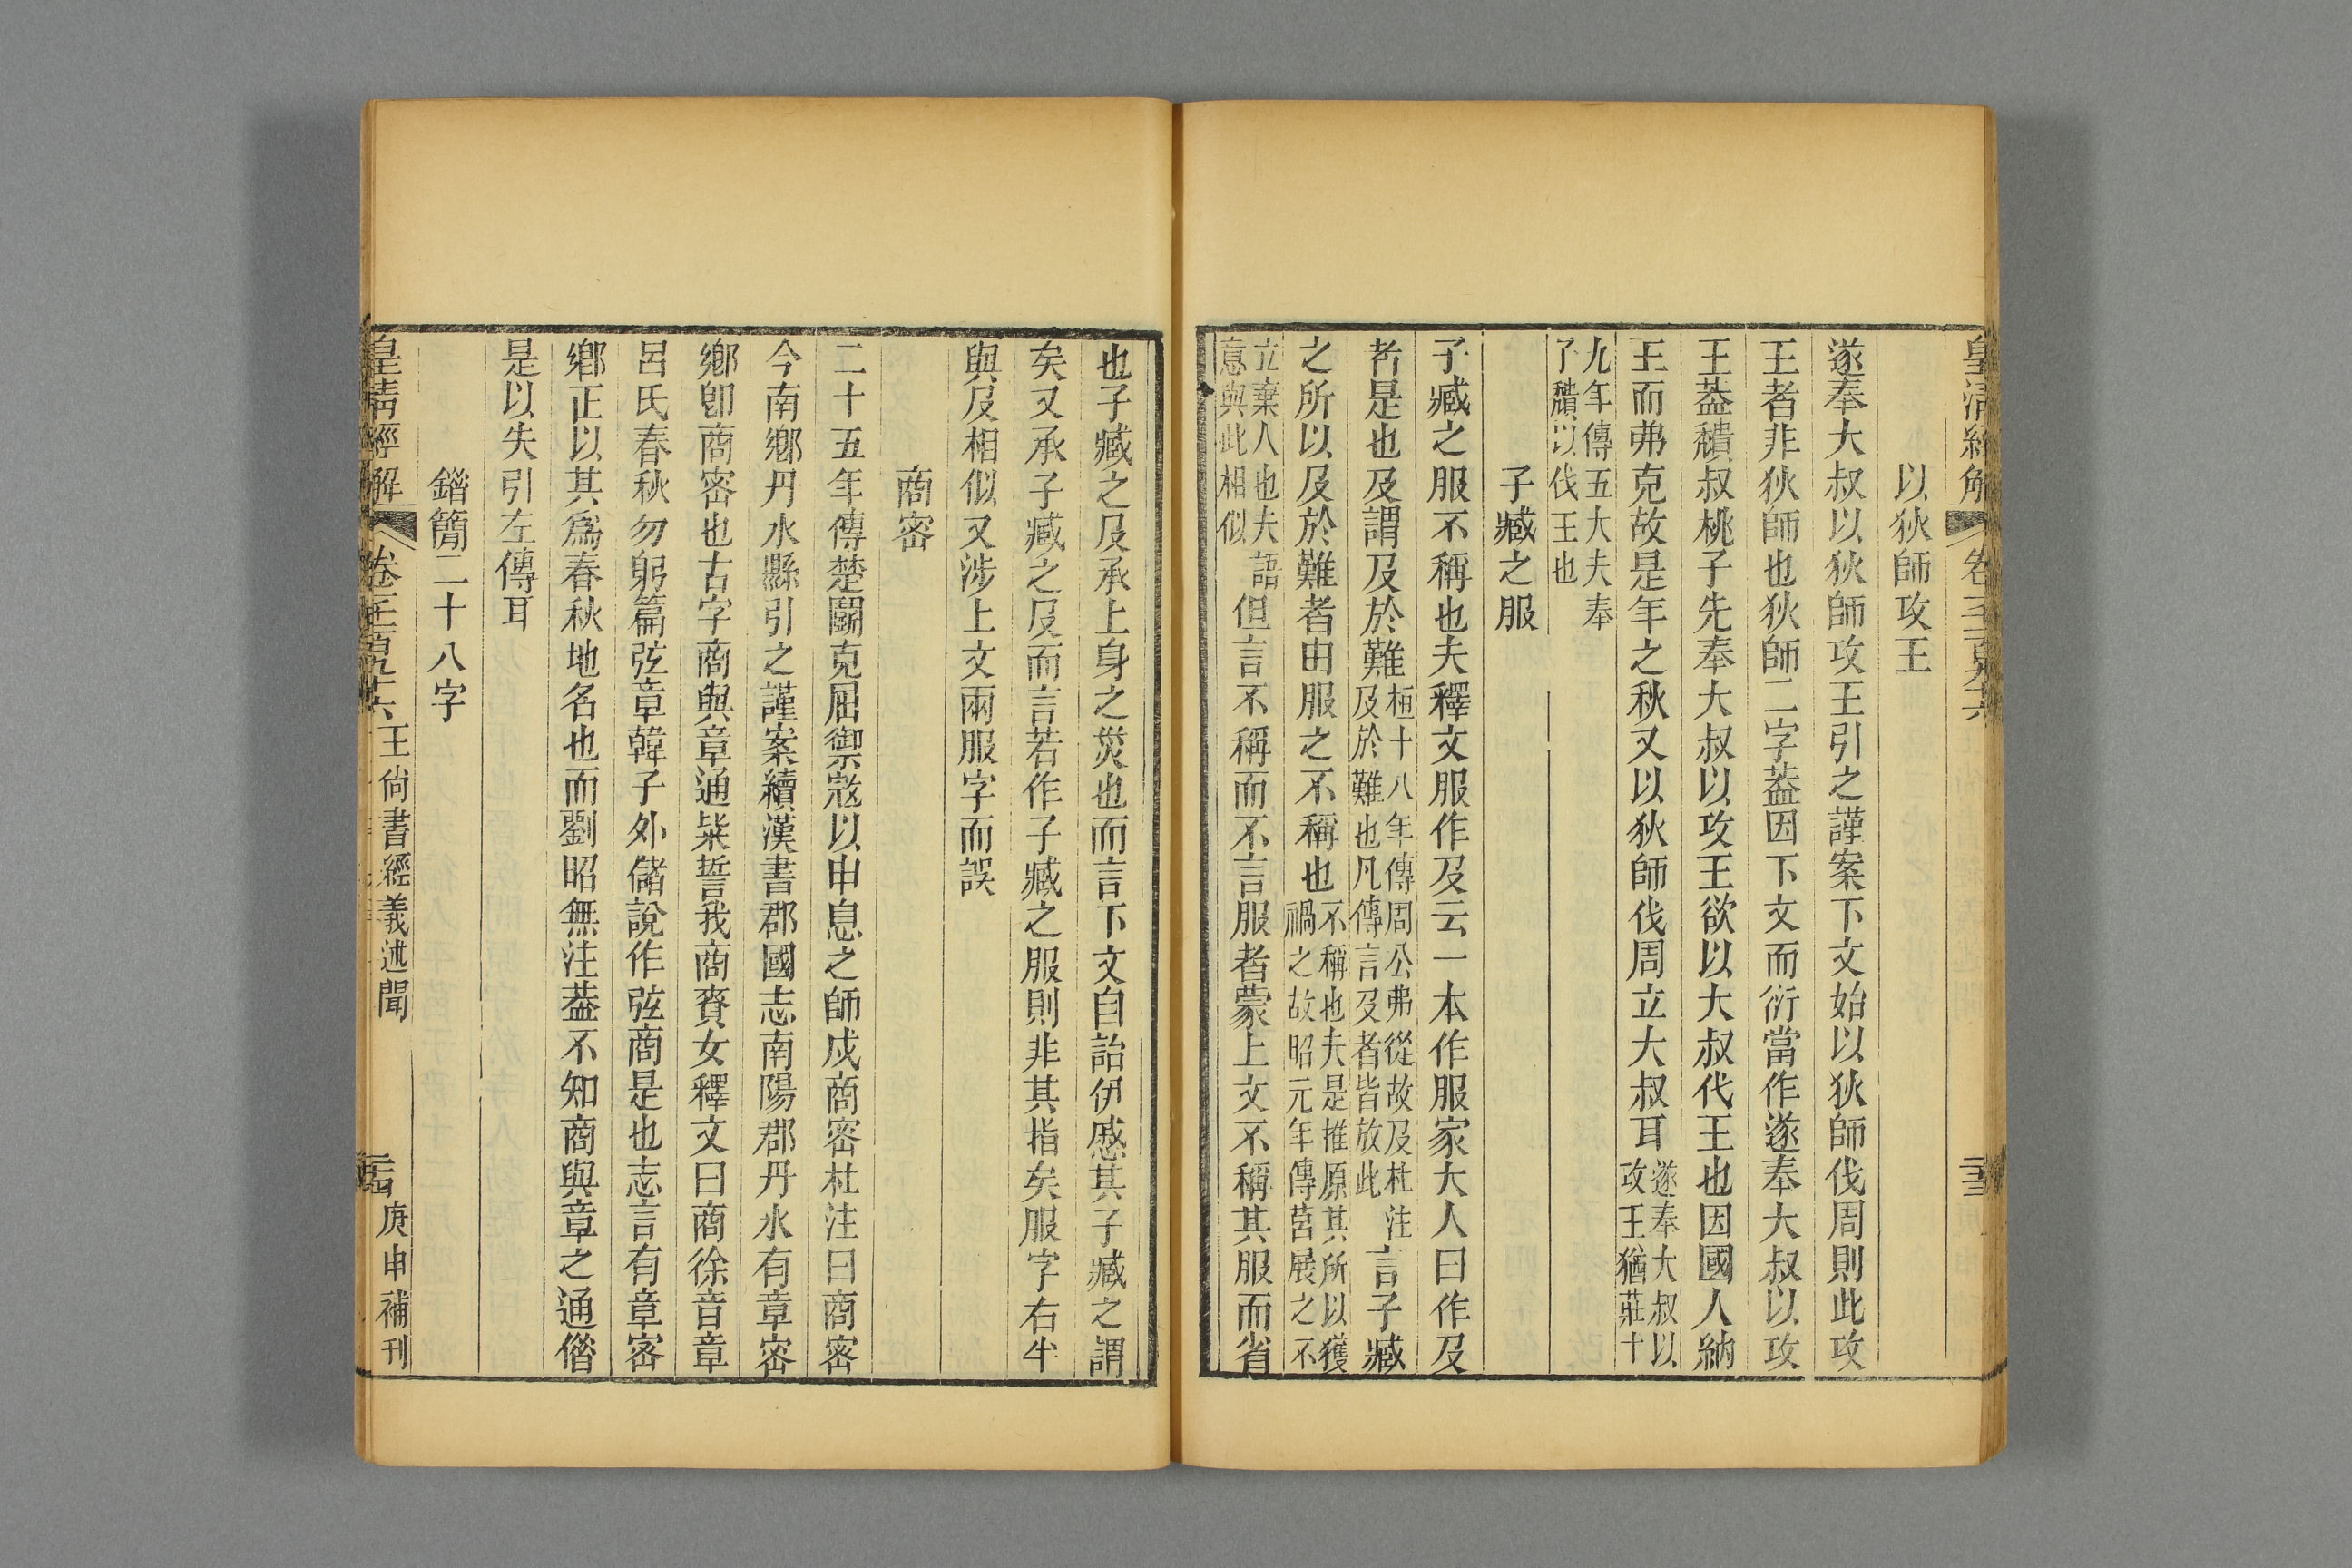 皇清經解 卷三百九十六 二十三
以狄師攻王
遂奉大叔以狄師攻王引之謹案下文始以狄師伐周則此攻
王者非狄師也狄師二字葢因下文而衍當作遂奉大叔以攻
王葢穨叔桃子先奉大叔以攻王欲以大叔代王也因國人納
王而弗克故是年之秋又以狄師伐周立大叔耳遂奉大叔以攻王猶莊十
九年傳五大夫奉子穨以伐王也
子臧之服
子臧之服不稱也夫釋文服作及云一本作服家大人曰作及
者是也及謂及於難桓十八年傳周公弗從故及杜注及於難也凡傳言及者皆放此言子臧
之所以及於難者由服之不稱也不稱也夫是推原其所以獲禍之故昭元年傳莒展之不
立棄人也夫語意與此相似但言不稱而不言服者蒙上文不稱其服而省
也子臧之及承上身之災也而言下文自詒伊慼其子臧之謂
矣又承子臧之及而言若作子臧之服則非其指矣服字右半
與及相似又涉上文兩服字而誤
商密
二十五年傳楚鬬克屈禦寇以申息之師戍商密杜注曰商密
今南鄉丹水縣引之謹案續漢書郡國志南陽郡丹水有章密
鄉卽商密也古字商與章通柴誓我商賚女釋文曰商徐音章
呂氏春秋勿躬篇弦章韓子外儲說作弦商是也志言有章密
鄉正以其爲春秋地名也而劉昭無注葢不知商與章之通偺
是以失引左傳耳
錯簡二十八字
皇清經解 卷三百九十六 王尙書經義述聞 二十四 庚申補刊